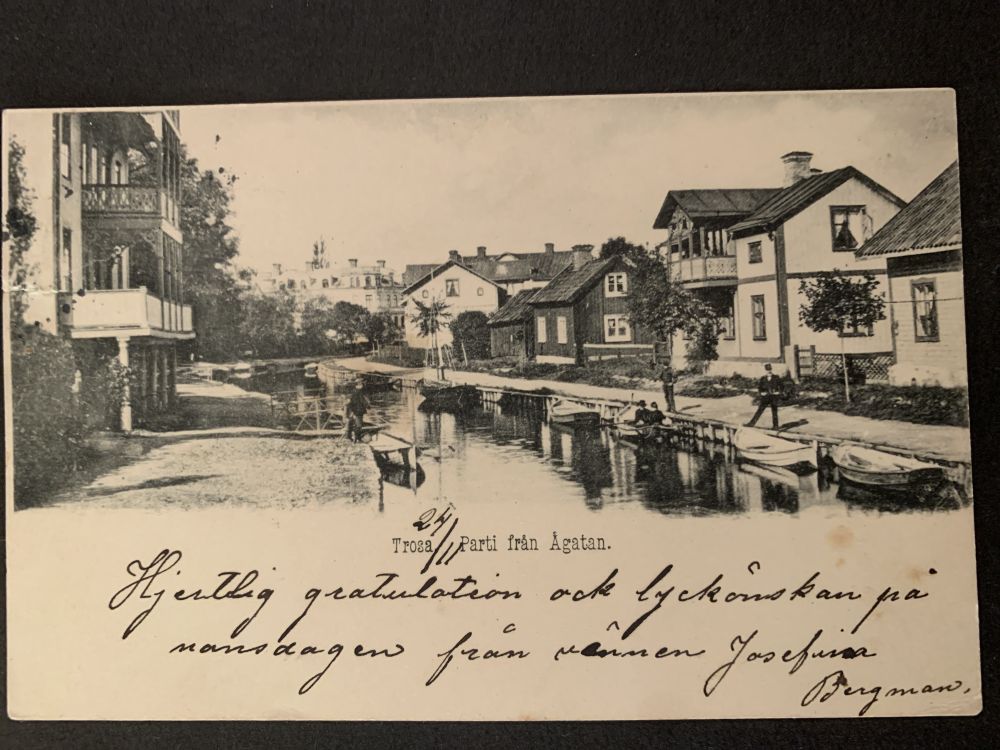 24/11
Trosa. Parti från Ågatan.
Hjertlig gratulation ock lyckönskan på
nansdagen från vännen Josefina
Bergman.